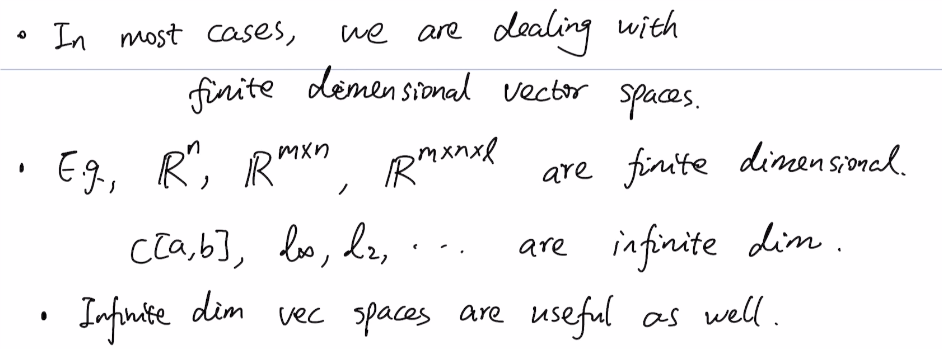 • In most cases, we are dealing with
finite dimensional vector spaces.
• E.g., ℝⁿ, ℝᵐˣⁿ, ℝᵐˣⁿˣˡ are finite dimensional.
C[a,b], l∞, l₂, ... are infinite dim.
• Infinite dim vec spaces are useful as well.